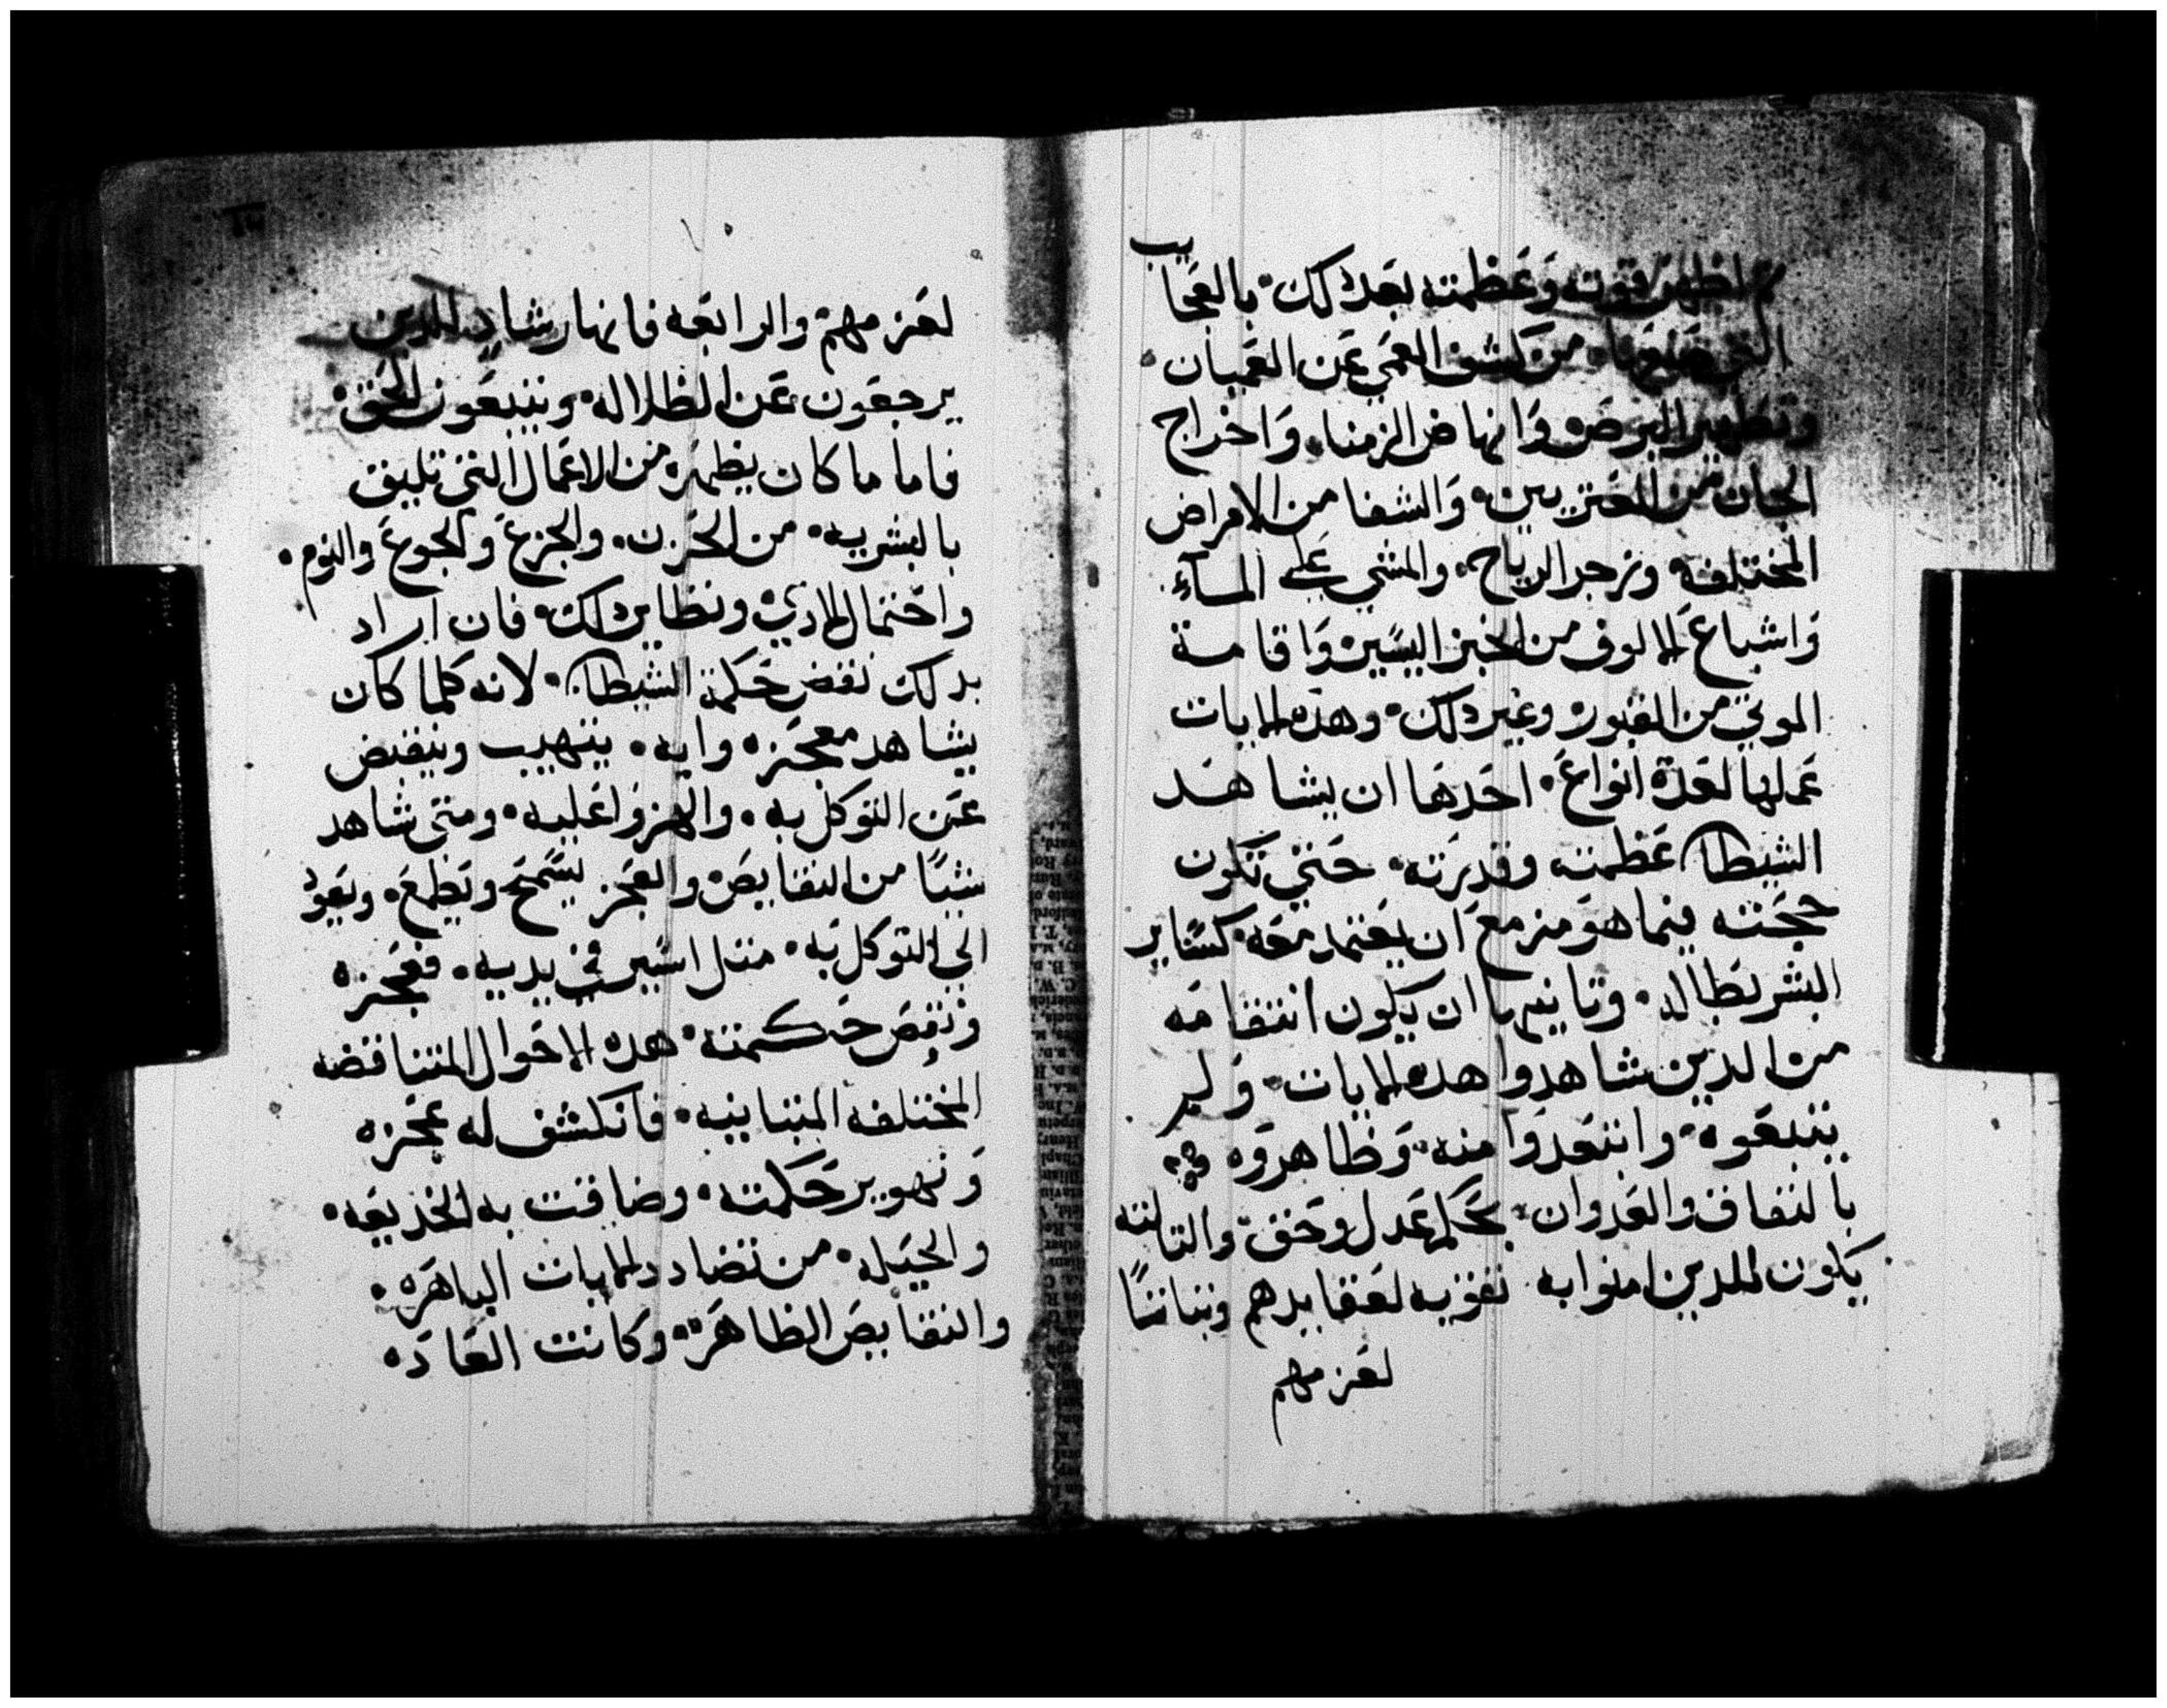 ثم اظهر قوته وعظمته بعد دلك بالعجايب
التي صنعها من كشف العمي عن العميان
وتطهير البرص وانهاض الزمنا واخراج
الجان من المعتريين والشفا من الامراض
المختلفه وزجر الرياح والمشي علي المآء
واشباع الالوف من الخبز اليسير واقامة
الموتي من القبور وغير دلك وهده الايات
عملها لعدة انواع احدها ان يشاهد
الشيطان عظمته وقدرته حتي تكون
حجته فيما هو مزمع ان يعتمد معه كساير
البشر بطاله وتانيها ان يكون انتقامه
من الدين شاهدوا هده الايات ولم
يتبعوه وابتعدوا منه وظاهروه
بالنفاق والعدوان بحكم عدل وحق والتالته
يكون للدين امنوا به تقويه لعقايدهم وتباتًا
لعزمهم
لعزمهم والرابعه فانها رشاد للدين
يرجعون عن الظلاله ويتبعون الحق
فاما ما كان يظهره من الاعمال التي تليق
بالبشريه من الحزن والجزع والجوع والنوم
واحتمال الادي ونظاير دلك فان اراد
بدلك نقض حكمة الشيطان لانه كلما كان
يشاهد معجزه وايه يتهيب وينقبض
عن التوكل به والهزوا عليه ومتي شاهد
شيًا من النقايص والعجز يسمح ويطمع ويعود
الي التوكل به متل اسير في يديه فعجزه
ونقص حكمته هده الاحوال المتناقضه
المختلفه المتباينه فانكشف له عجزه
وتهوير حكمته وضاقت به الخديعه
والحيله من تضادد الايات الباهره
والنقايص الظاهرة وكانت العاده